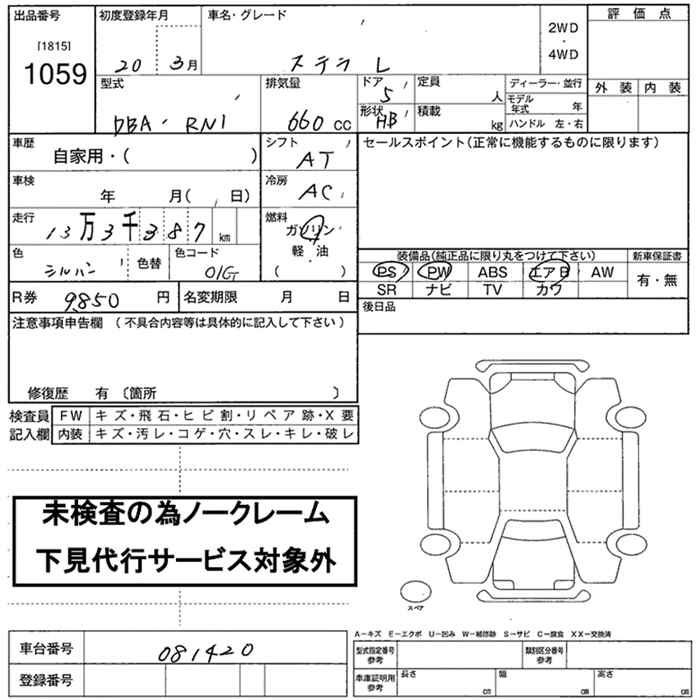 出品番号 初度登録年月 車名・グレード 2WD・4WD 評価点
[1815]
1059
20 3月 ステラ L
外装 内装
型式 排気量 ドア 定員 ディーラー・並行
5 人 モデル年式 年
DBA・RN1 660 CC 形状 HB 積載 kg ハンドル 左・右
車歴 シフト セールスポイント(正常に機能するものに限ります)
自家用・( ) AT
車検 冷房
年 月( 日) AC
走行 燃料
13万3千387 km ガソリン
軽・油
( )
色 色替 色コード
シルバー 01G
装備品(純正品に限り丸をつけて下さい) 新車保証書
PS PW ABS エアB AW 有・無
SR ナビ TV カワ
R券 9,850 円 名変期限 月 日
後日品
注意事項申告欄 (不具合内容等は具体的に記入して下さい)
修復歴 有 〔箇所 〕
検査員記入欄
FW キズ・飛石・ヒビ割・リペア跡・X要
内装 キズ・汚レ・コゲ・穴・スレ・キレ・破レ
未検査の為ノークレーム
下見代行サービス対象外
スペア
A-キズ E-エクボ U-凹み W-補修跡 S-サビ C-腐食 XX-交換済
車台番号 081420
型式指定番号参考 類別区分番号参考
登録番号
車庫証明用参考 長さ cm 幅 cm 高さ cm